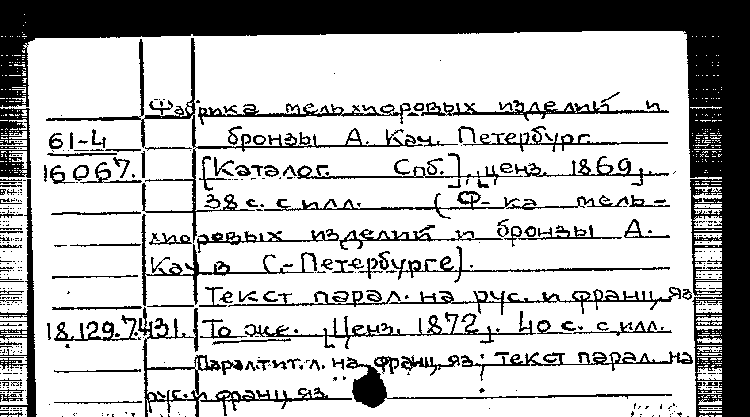 Фабрика мельхиоровых изделий и
61-4 бронзы А. Кач. Петербург.
16067. [Каталог. Спб.], ⌊ценз. 1869⌋.
38 с. с илл. (Ф-ка мель-
хиоровых изделий и бронзы А.
Кач в С.-Петербурге).
Текст парал. на рус. и франц. яз
18.129.7.431. То же. ⌊Ценз. 1872⌋. 40 с. с илл.
Парал. тит. л. на франц. яз.; текст парал. на
рус. и франц. яз.